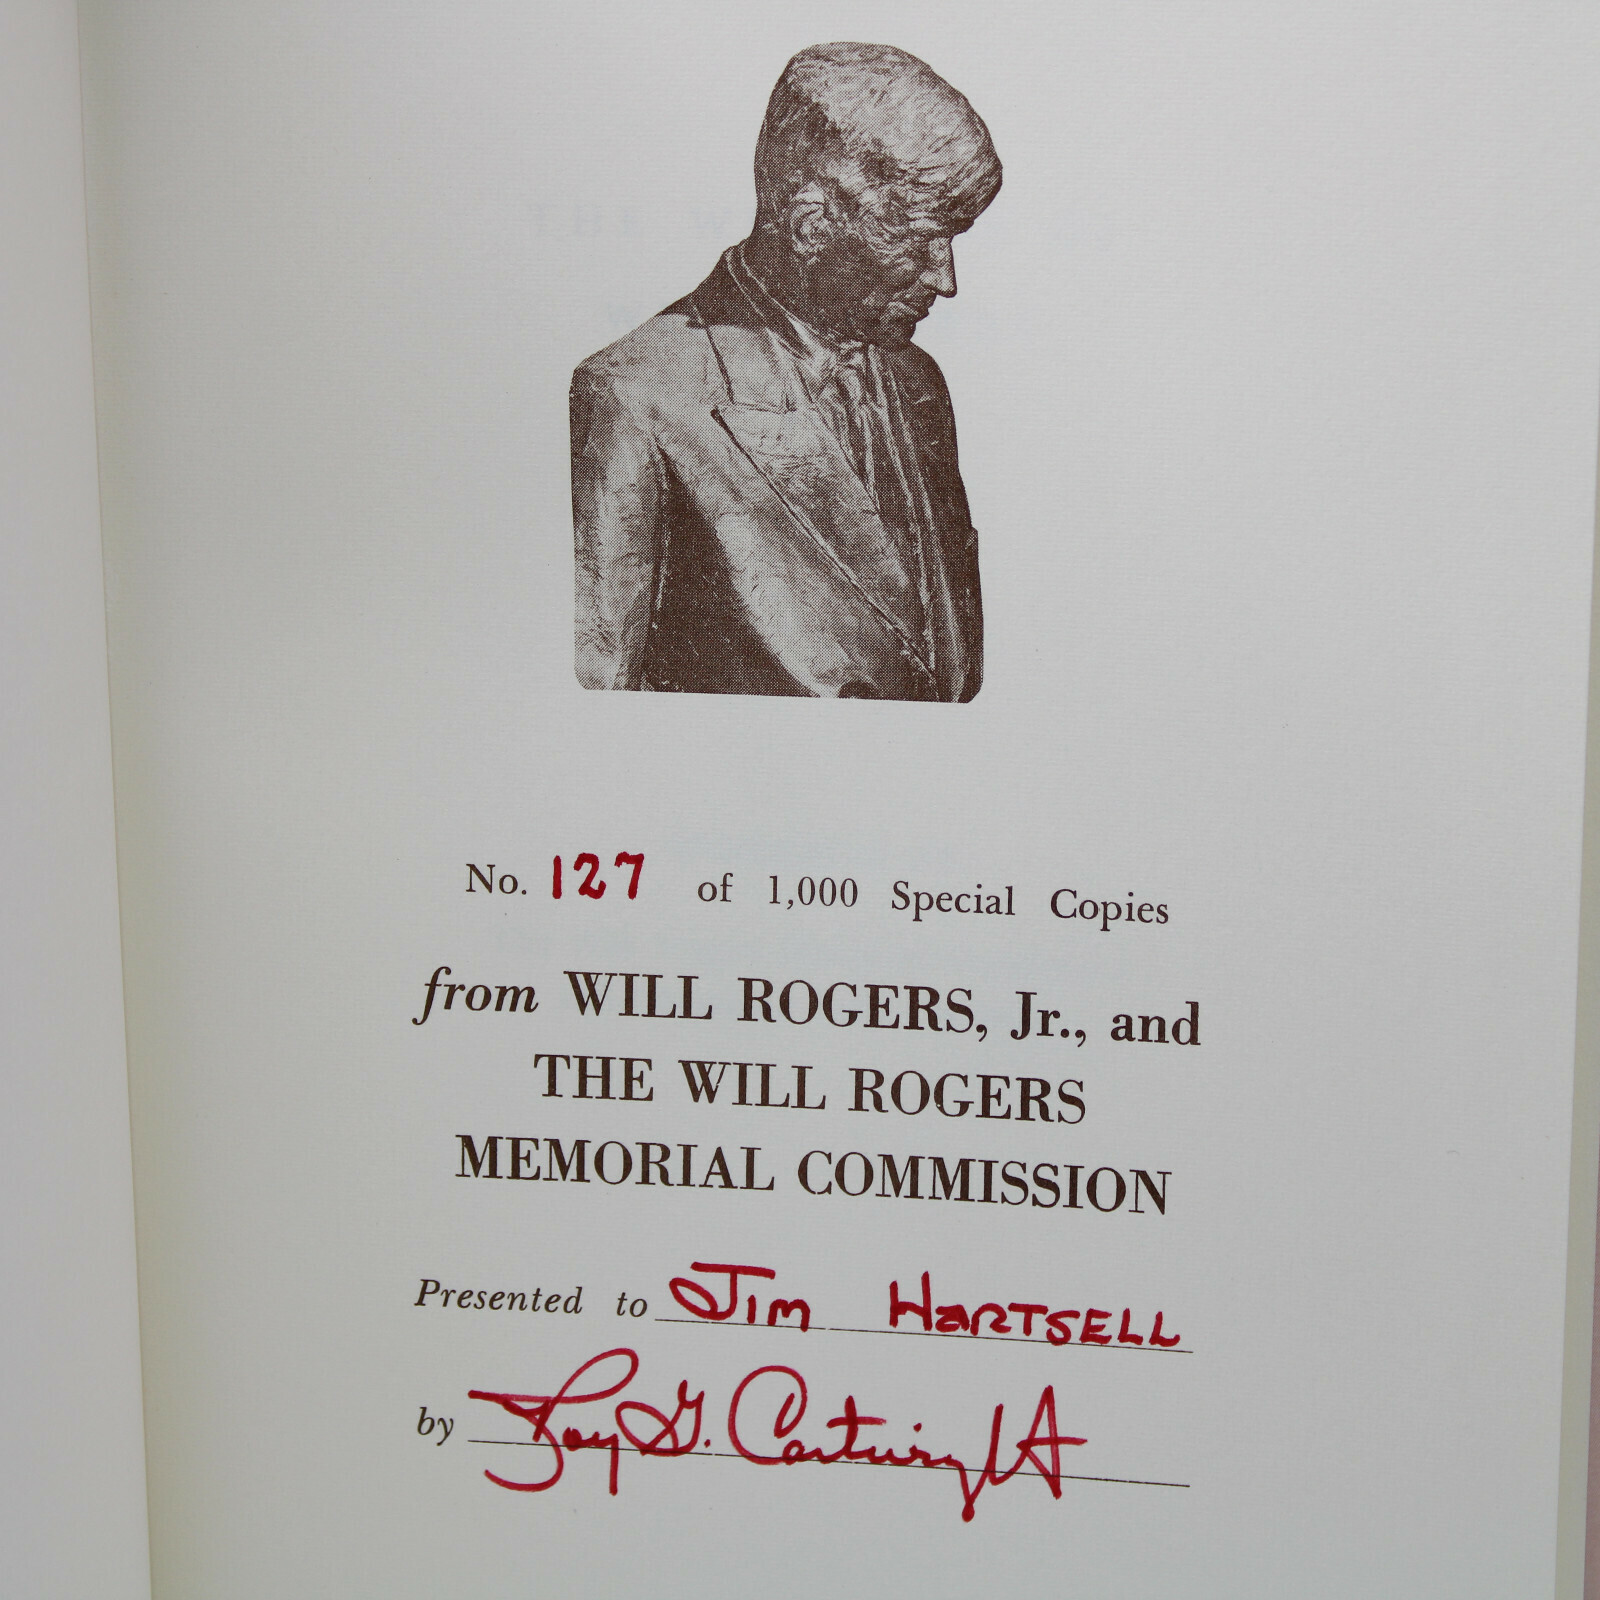 No. 127 of 1,000 Special Copies
from WILL ROGERS, Jr., and
THE WILL ROGERS
MEMORIAL COMMISSION
Presented to Jim Hartsell
by Roy G. Cartwright